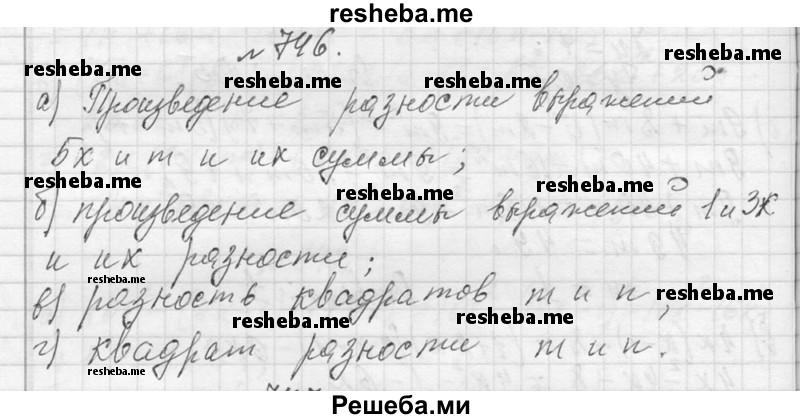 resheba.me
№ 746.
resheba.me resheba.me resheba.me
а) Произведение разности выражений
5х и т и их суммы;
resheba.me resheba.me resheba.me
б) произведение суммы выражений 1 и 3к
и их разности;
resheba.me
в) разность квадратов т и п;
resheba.me resheba.me resheba.me
г) квадрат разности т и п.
resheba.me
Решеба.ми